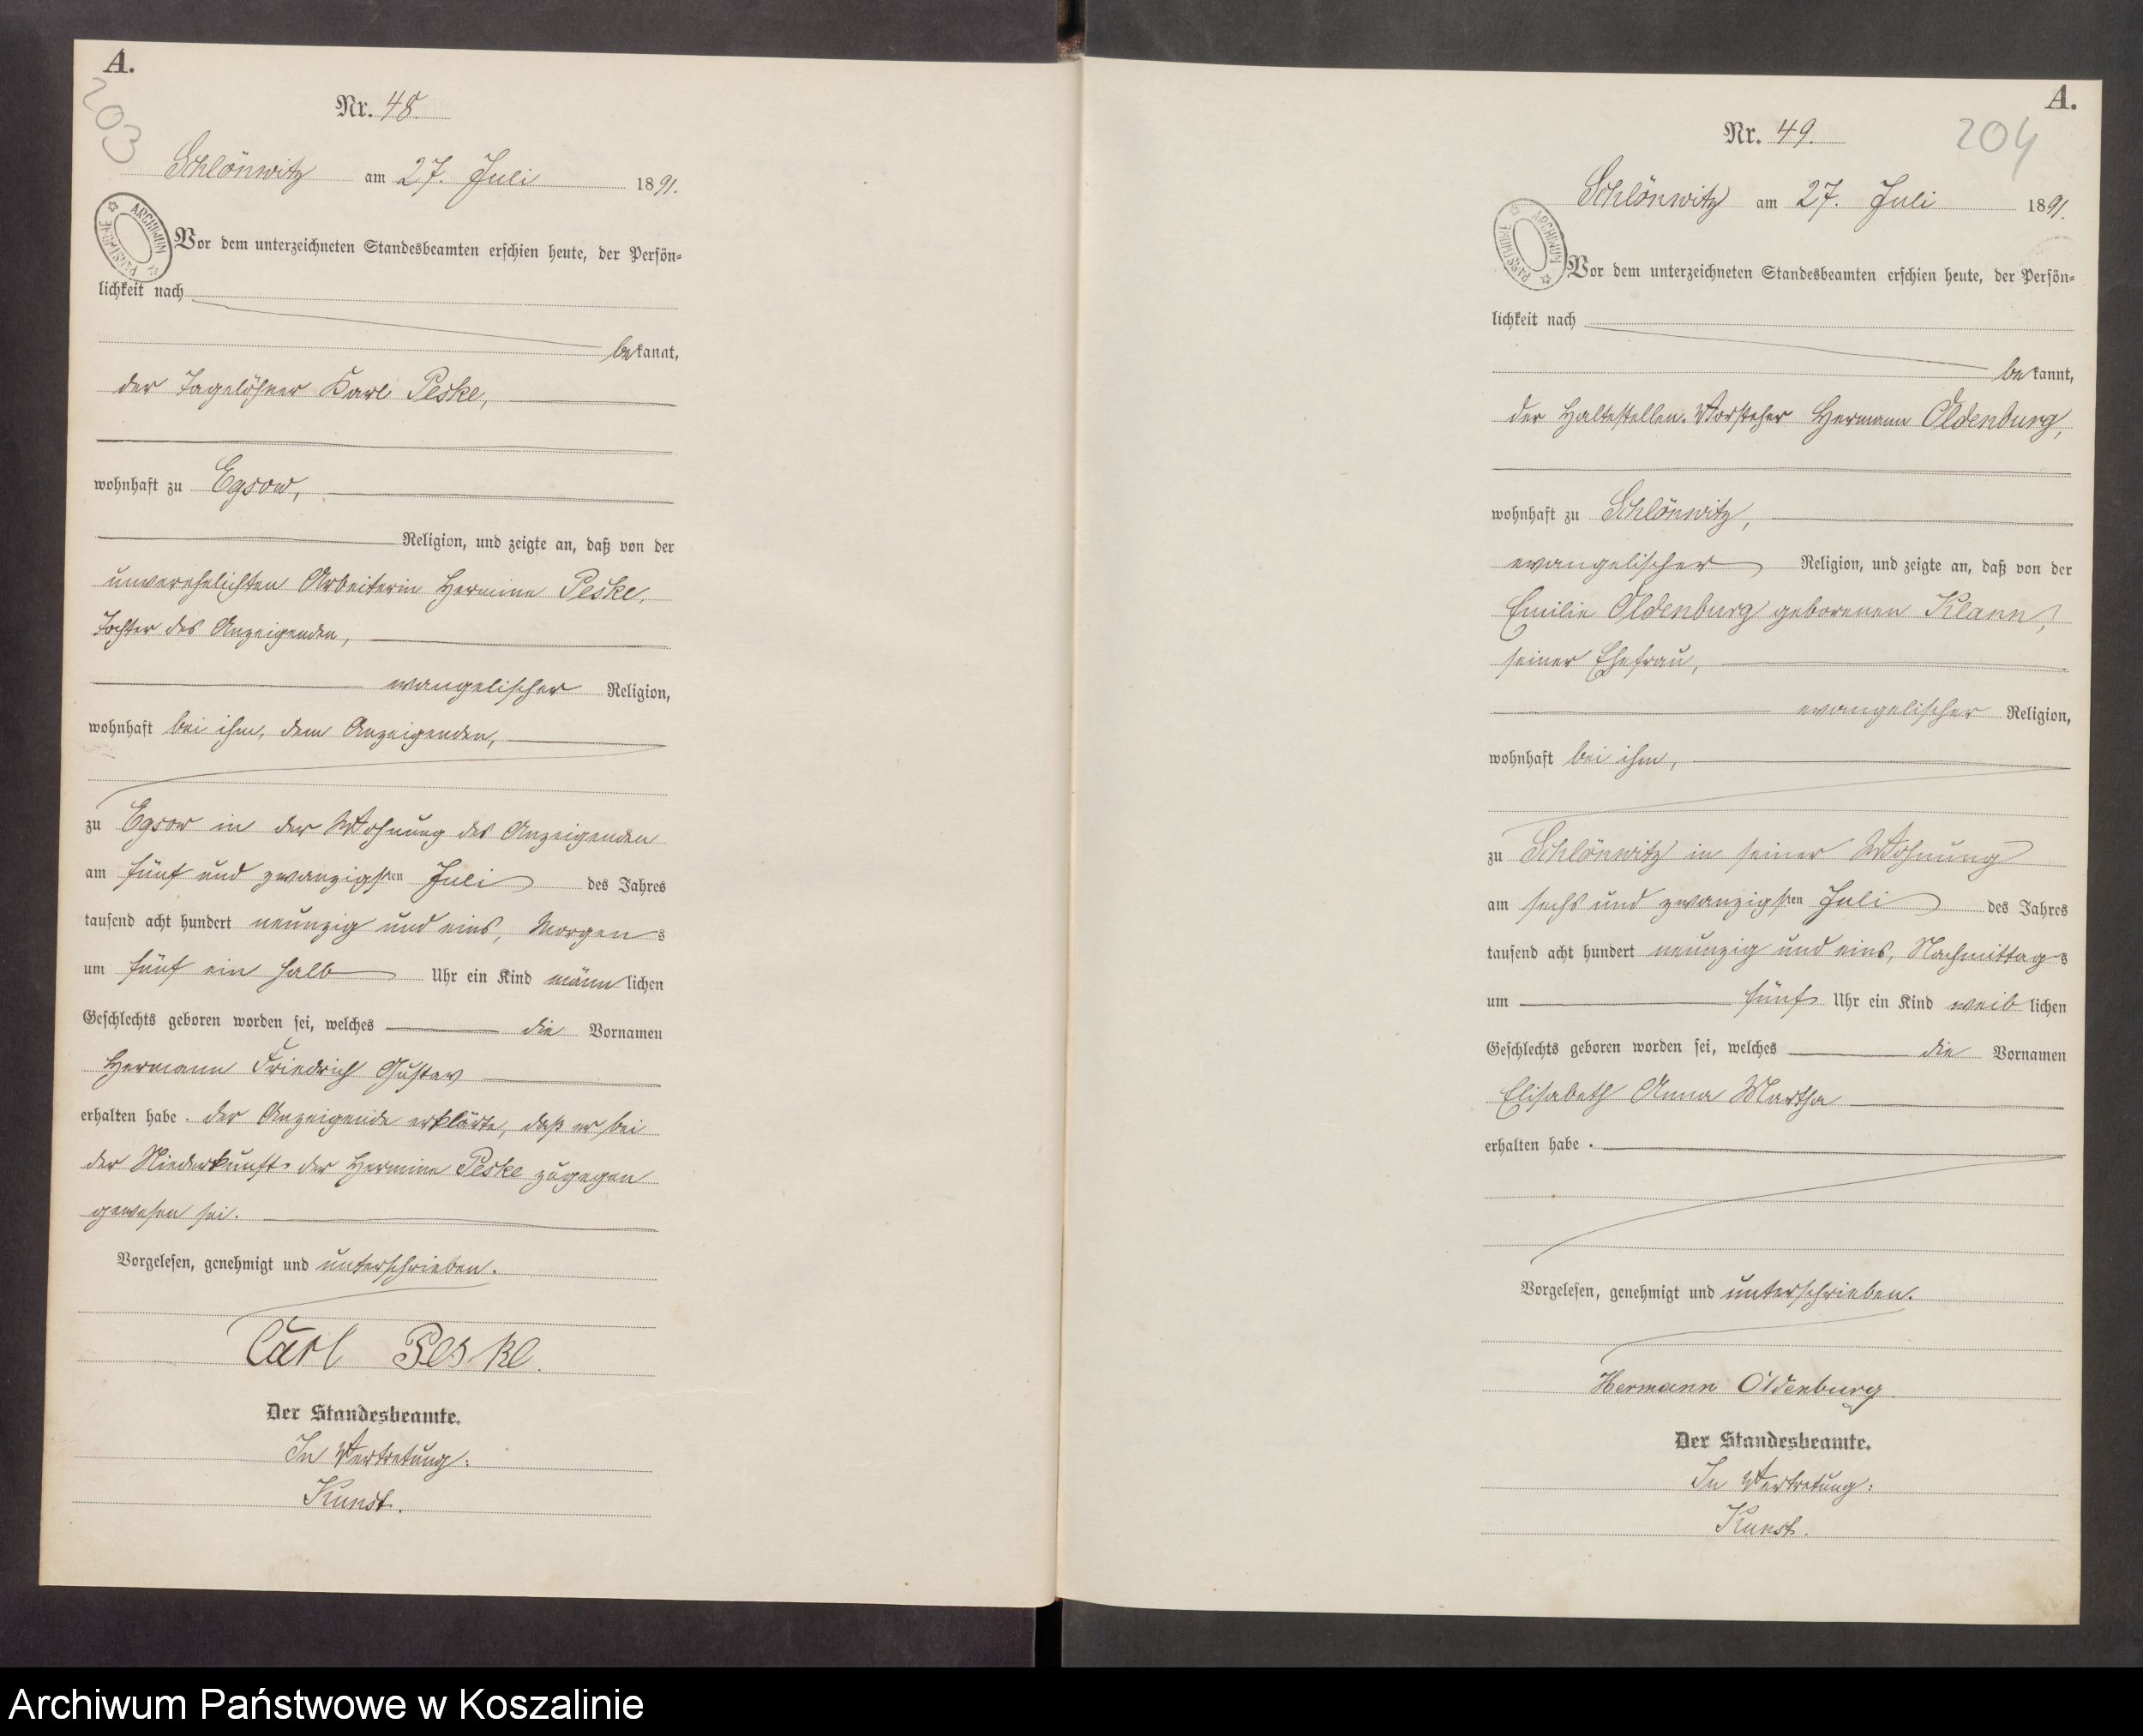 A.
203
Nr. 48.
Schlönwitz am 27. Juli 1891.
ARCHIWUM PAŃSTWOWE
Vor dem unterzeichneten Standesbeamten erschien heute, der Persön-
lichkeit nach
bekannt,
der Tagelöhner Karl Peske,
wohnhaft zu Egsow,
Religion, und zeigte an, daß von der
unverehelichten Arbeiterin Hermine Peske,
Tochter des Anzeigenden,
evangelischer Religion,
wohnhaft bei ihm, dem Anzeigenden,
zu Egsow in der Wohnung des Anzeigenden
am fünf und zwanzigsten Juli des Jahres
tausend acht hundert neunzig und eins, Morgens
um fünf ein halb Uhr ein Kind männlichen
Geschlechts geboren worden sei, welches die Vornamen
Hermann Friedrich Gustav
erhalten habe. der Anzeigende erklärte, daß er bei
der Niederkunft der Hermine Peske zugegen
gewesen sei.
Vorgelesen, genehmigt und unterschrieben.
Carl Peske.
Der Standesbeamte.
In Vertretung:
Kunst.
A.
204
Nr. 49.
Schlönwitz am 27. Juli 1891.
ARCHIWUM PAŃSTWOWE
Vor dem unterzeichneten Standesbeamten erschien heute, der Persön-
lichkeit nach
bekannt,
der Haltestellen-Vorsteher Hermann Oldenburg,
wohnhaft zu Schlönwitz,
evangelischer Religion, und zeigte an, daß von der
Emilie Oldenburg geborenen Klann,
seiner Ehefrau,
evangelischer Religion,
wohnhaft bei ihm,
zu Schlönwitz in seiner Wohnung
am sechs und zwanzigsten Juli des Jahres
tausend acht hundert neunzig und eins, Nachmittags
um fünf Uhr ein Kind weiblichen
Geschlechts geboren worden sei, welches die Vornamen
Elisabeth Anna Martha
erhalten habe.
Vorgelesen, genehmigt und unterschrieben.
Hermann Oldenburg
Der Standesbeamte.
In Vertretung:
Kunst.
Archiwum Państwowe w Koszalinie